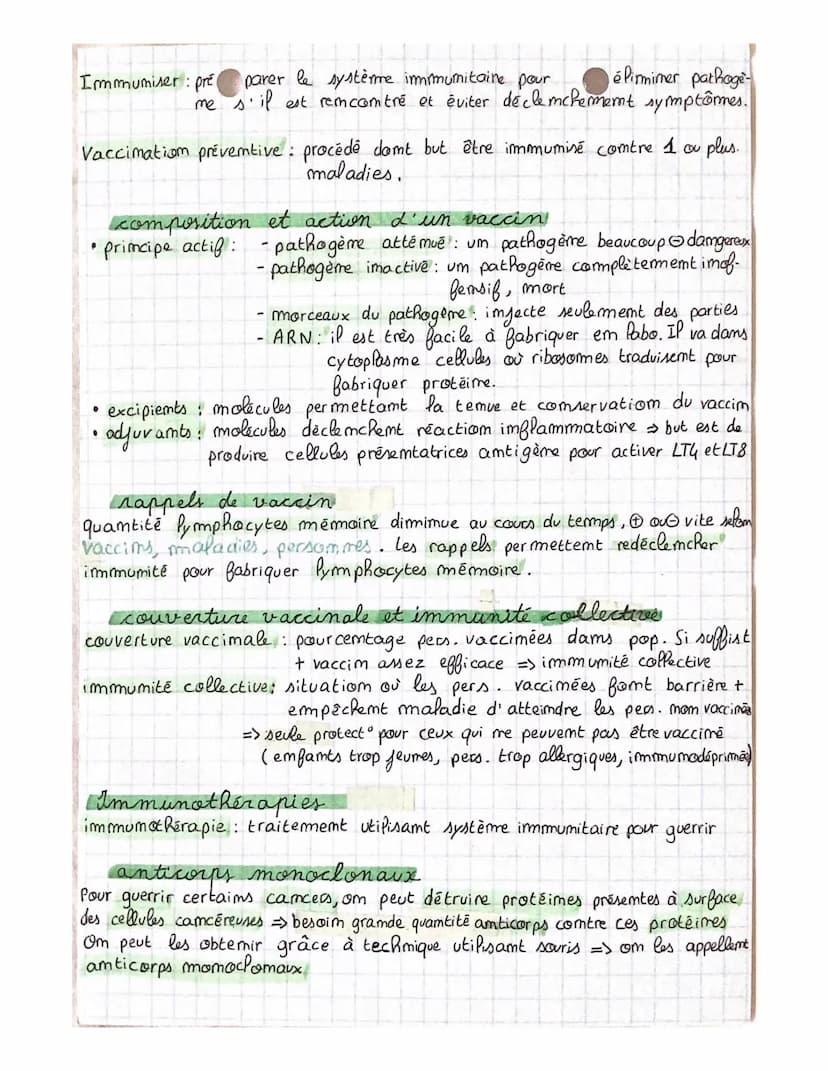 Immuniser : pré parer le système immunitaire pour éliminer pathogè-
ne s'il est rencontré et éviter déclenchement symptômes.
Vaccination préventive : procédé dont but être immunisé contre 1 ou plus.
maladies.
composition et action d'un vaccin
• principe actif : - pathogène atténué : un pathogène beaucoup ⊖ dangereux
- pathogène inactivé : un pathogène complètement inof-
fensif, mort
- morceaux du pathogène : injecte seulement des parties
- ARN : il est très facile à fabriquer en labo. Il va dans
cytoplasme cellules où ribosomes traduisent pour
fabriquer protéine.
• excipients : molécules permettant la tenue et conservation du vaccin
• adjuvants : molécules déclenchent réaction inflammatoire ⇒ but est de
produire cellules présentatrices antigène pour activer LT4 et LT8
rappels de vaccin
quantité lymphocytes mémoire diminue au cours du temps, ⊕ ou ⊖ vite selon
vaccins, maladies, personnes. Les rappels permettent redéclencher
immunité pour fabriquer lymphocytes mémoire.
couverture vaccinale et immunité collective
couverture vaccinale : pourcentage pers. vaccinées dans pop. Si suffist
+ vaccin assez efficace => immunité collective
immunité collective : situation où les pers. vaccinées font barrière +
empêchent maladie d'atteindre les pers. non vaccinés
=> seule protect° pour ceux qui ne peuvent pas être vacciné
(enfants trop jeunes, pers. trop allergiques, immunodéprimés)
Immunothérapies
immunothérapie : traitement utilisant système immunitaire pour guerrir
anticorps monoclonaux
Pour guerrir certains cancers, on peut détruire protéines présentes à surface
des cellules cancéreuses ⇒ besoin grande quantité anticorps contre ces protéines
On peut les obtenir grâce à technique utilisant souris => on les appellent
anticorps monoclonaux